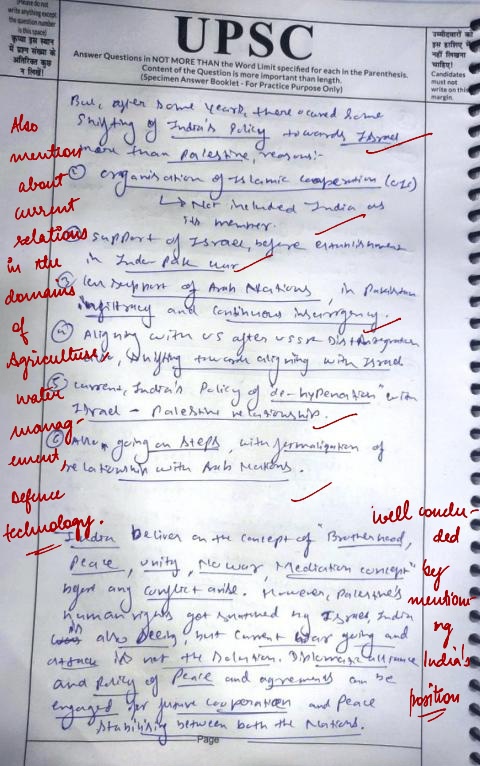 (Please do not
write anything except
the question number
in this space)
कृपया इस स्थान
में प्रश्न संख्या के
अतिरिक्त कुछ
न लिखें।
UPSC
Answer Questions in NOT MORE THAN the Word Limit specified for each in the Parenthesis.
Content of the Question is more important than length.
(Specimen Answer Booklet - For Practice Purpose Only)
उम्मीदवारों को
इस हाशिए में
नहीं लिखना
चाहिए।
Candidates
must not
write on this
margin.
But, after some years, there occured some
shifting of India's Policy towards Israel
more than Palestine, reasons:-
① Organisation of Islamic cooperation (OIC)
↳ Not included India as
its member.
support of Israel, before establishment
in Indo-Pak war
③ support of Arab Nations, in Pakistan
infiltracy and continuous insurgency.
④ Aligning with US after USSR
shifting towards aligning with Israel
⑤ current, India's Policy of de-hypenation" with
Israel - Palestine relationship.
⑥ Also going on steps, with formalization of
relationship with Arab Nations.
India believer on the concept of "Brotherhood,
Peace, unity, No war, Mediation concept"
before any conflict arise. However, Palestine's
human rights got by Israel, India
also but current war going and
attack is not the solution.
and Policy of Peace and agreements can be
engaged for future cooperation and Peace
stabilising between both the Nations.
Page
Also
mention
about
current
relations
in the
domains
of
Agriculture,
water
manag-
ement
Defence
technology.
well conclu-
ded
by
mentioni-
ng
India's
position